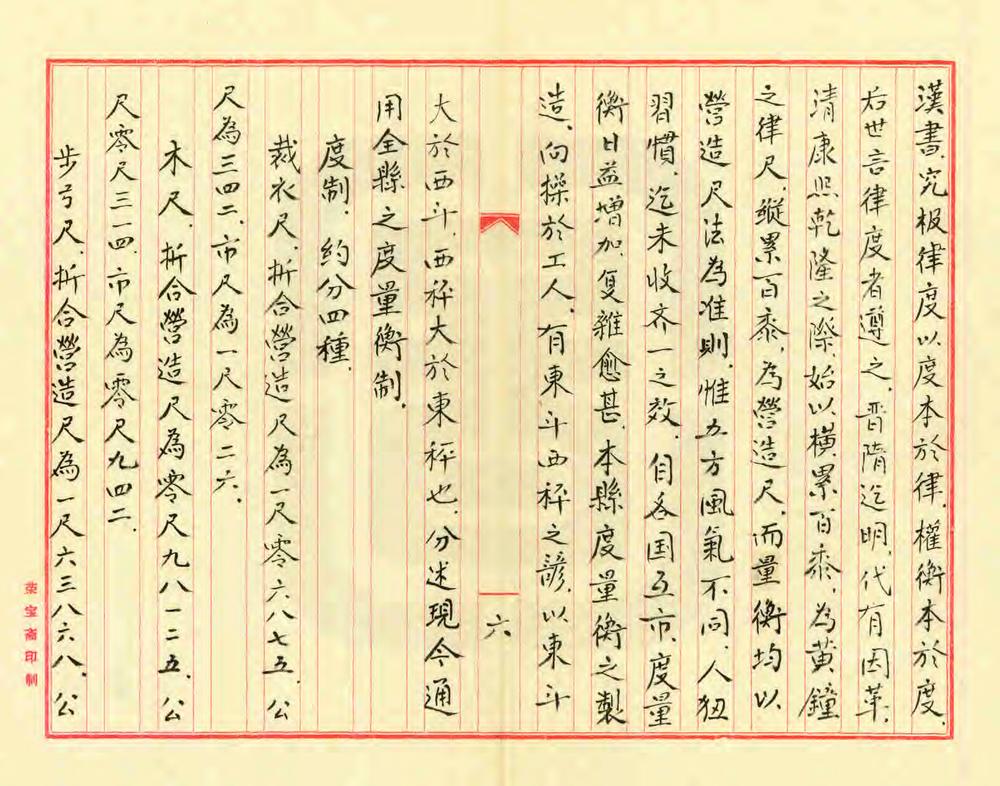 漢書究极律度以度本於律,權衡本於度.
后世言律度者遵之.晋隋迄明,代有因革.
清康熙乾隆之際,始以橫累百黍,為黄鐘
之律尺,縱累百黍,為營造尺,而量衡均以
營造尺法為准則,惟五方風氣不同,人狃
習慣,迄未收齐一之效.自各国互市,度量
衡日益增加,复雜愈甚.本縣度量衡之製
造,向操於工人,有東斗西秤之諺,以東斗
六
大於西斗,西秤大於東秤也,分述現今通
用全縣之度量衡制.
度制,約分四種.
裁衣尺,折合營造尺為一尺零六八七五,公
尺為三四二,市尺為一尺零二六.
木尺,折合營造尺為零尺九八一二五,公
尺零尺三一四,市尺為零尺九四二.
步弓尺,折合營造尺為一尺六三八六八,公
荣宝斋印制